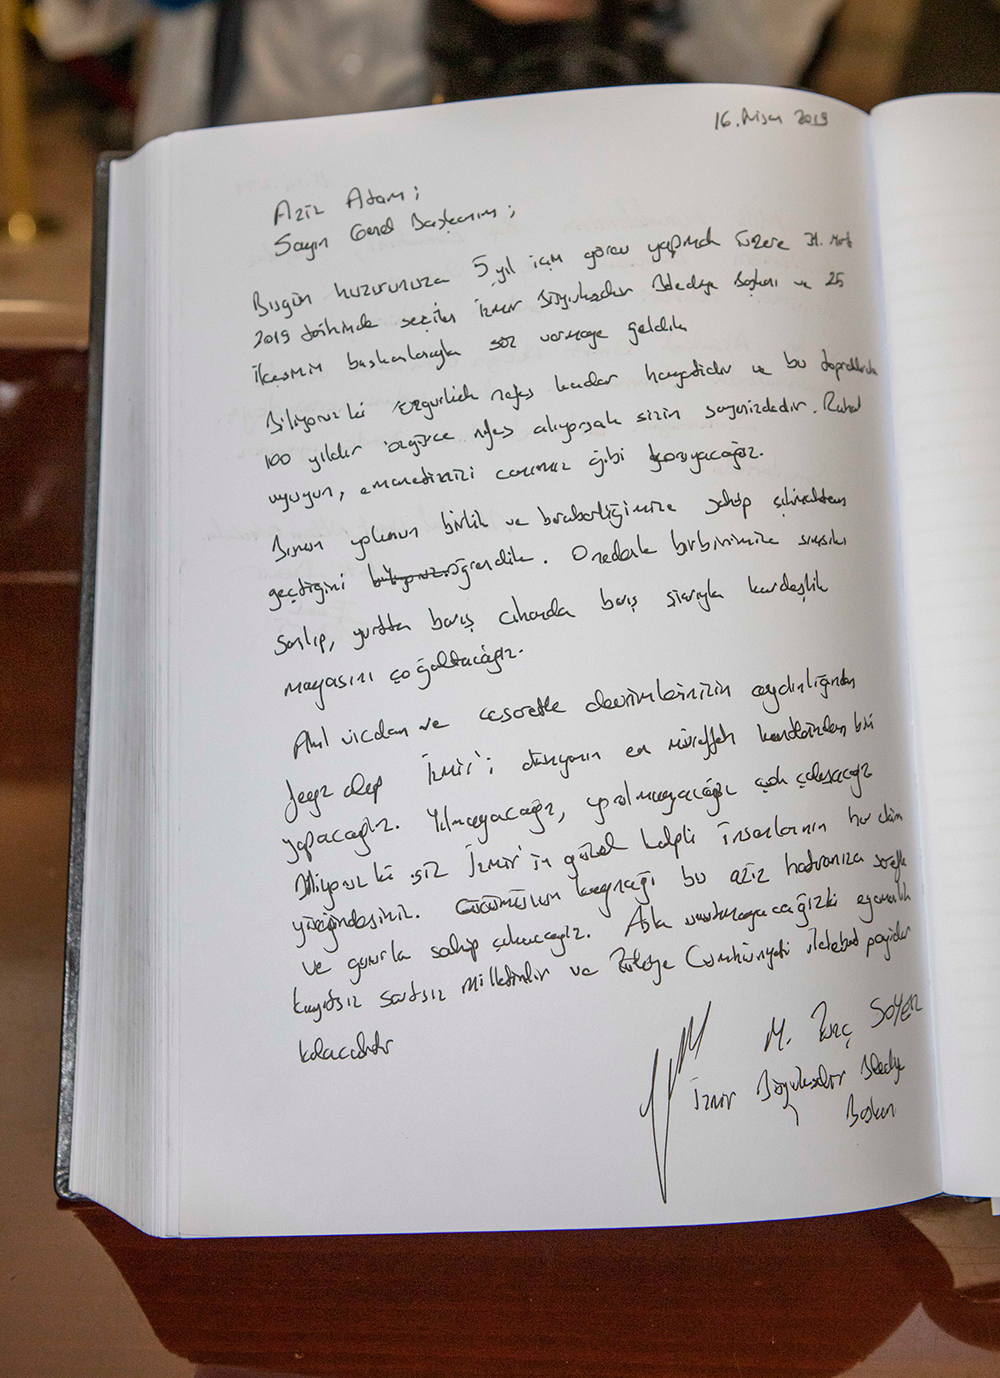 16. Nisan 2019
Aziz Atam;
Sayın Genel Başkanım;
Bugün huzurunuza 5 yıl için görev yapmak üzere 31. Mart
2019 tarihinde seçilen İzmir Büyükşehir Belediye Başkanı ve 25
ilçesinin başkanlarıyla söz vermeye geldik
Biliyoruz ki özgürlük nefes kadar hayatidir ve bu topraklarda
100 yıldır özgürce nefes alıyorsak sizin sayenizdedir. Rahat
uyuyun, emanetinizi canımız gibi koruyacağız.
Bunun yolunun birlik ve beraberliğimize sahip çıkmaktan
geçtiğini biliyoruz. öğrendik. O nedenle birbirimize sımsıkı
sarılıp, yurtta barış cihanda barış şiarıyla kardeşlik
mayasını çoğaltacağız.
Akıl vicdan ve cesaretle devrimlerinizin aydınlığından
feyz alıp İzmir'i dünyanın en müreffeh kentlerinden biri
yapacağız. Yılmayacağız, yorulmayacağız çok çalışacağız
Biliyoruz ki siz İzmir'in güzel kalpli insanlarının her daim
yüreğindesiniz. Gücümüzün kaynağı bu aziz hatıranıza şerefle
ve gururla sahip çıkacağız. Asla unutmayacağız ki egemenlik
kayıtsız şartsız milletindir ve Türkiye Cumhuriyeti ilelebet payidar
kalacaktır
M. Tunç SOYER
İzmir Büyükşehir Belediye
Başkanı